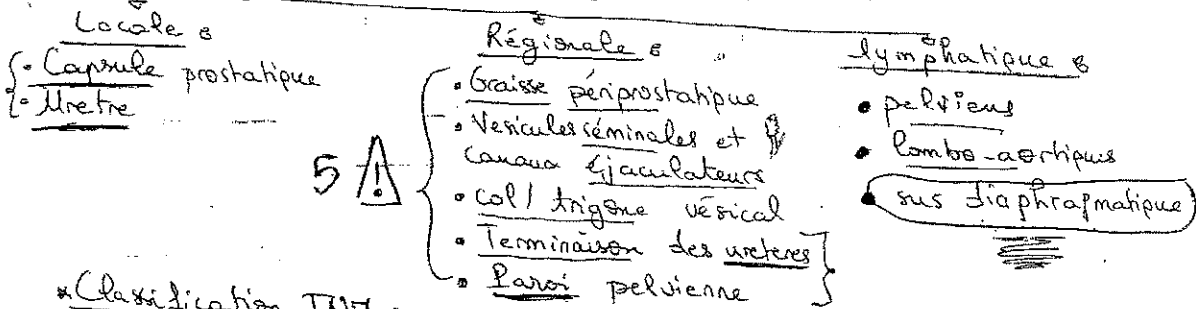 Locale :
• Capsule prostatique
• Uretre
Régionale :
5 !
• Graisse périprostatique
• Vesicules séminales et
canaux éjaculateurs
• col / trigone vésical
• Terminaison des ureteres
• Paroi pelvienne
lymphatique :
• pelviens
• lombo-aortiques
• sus diaphragmatique
* Classification TNM :